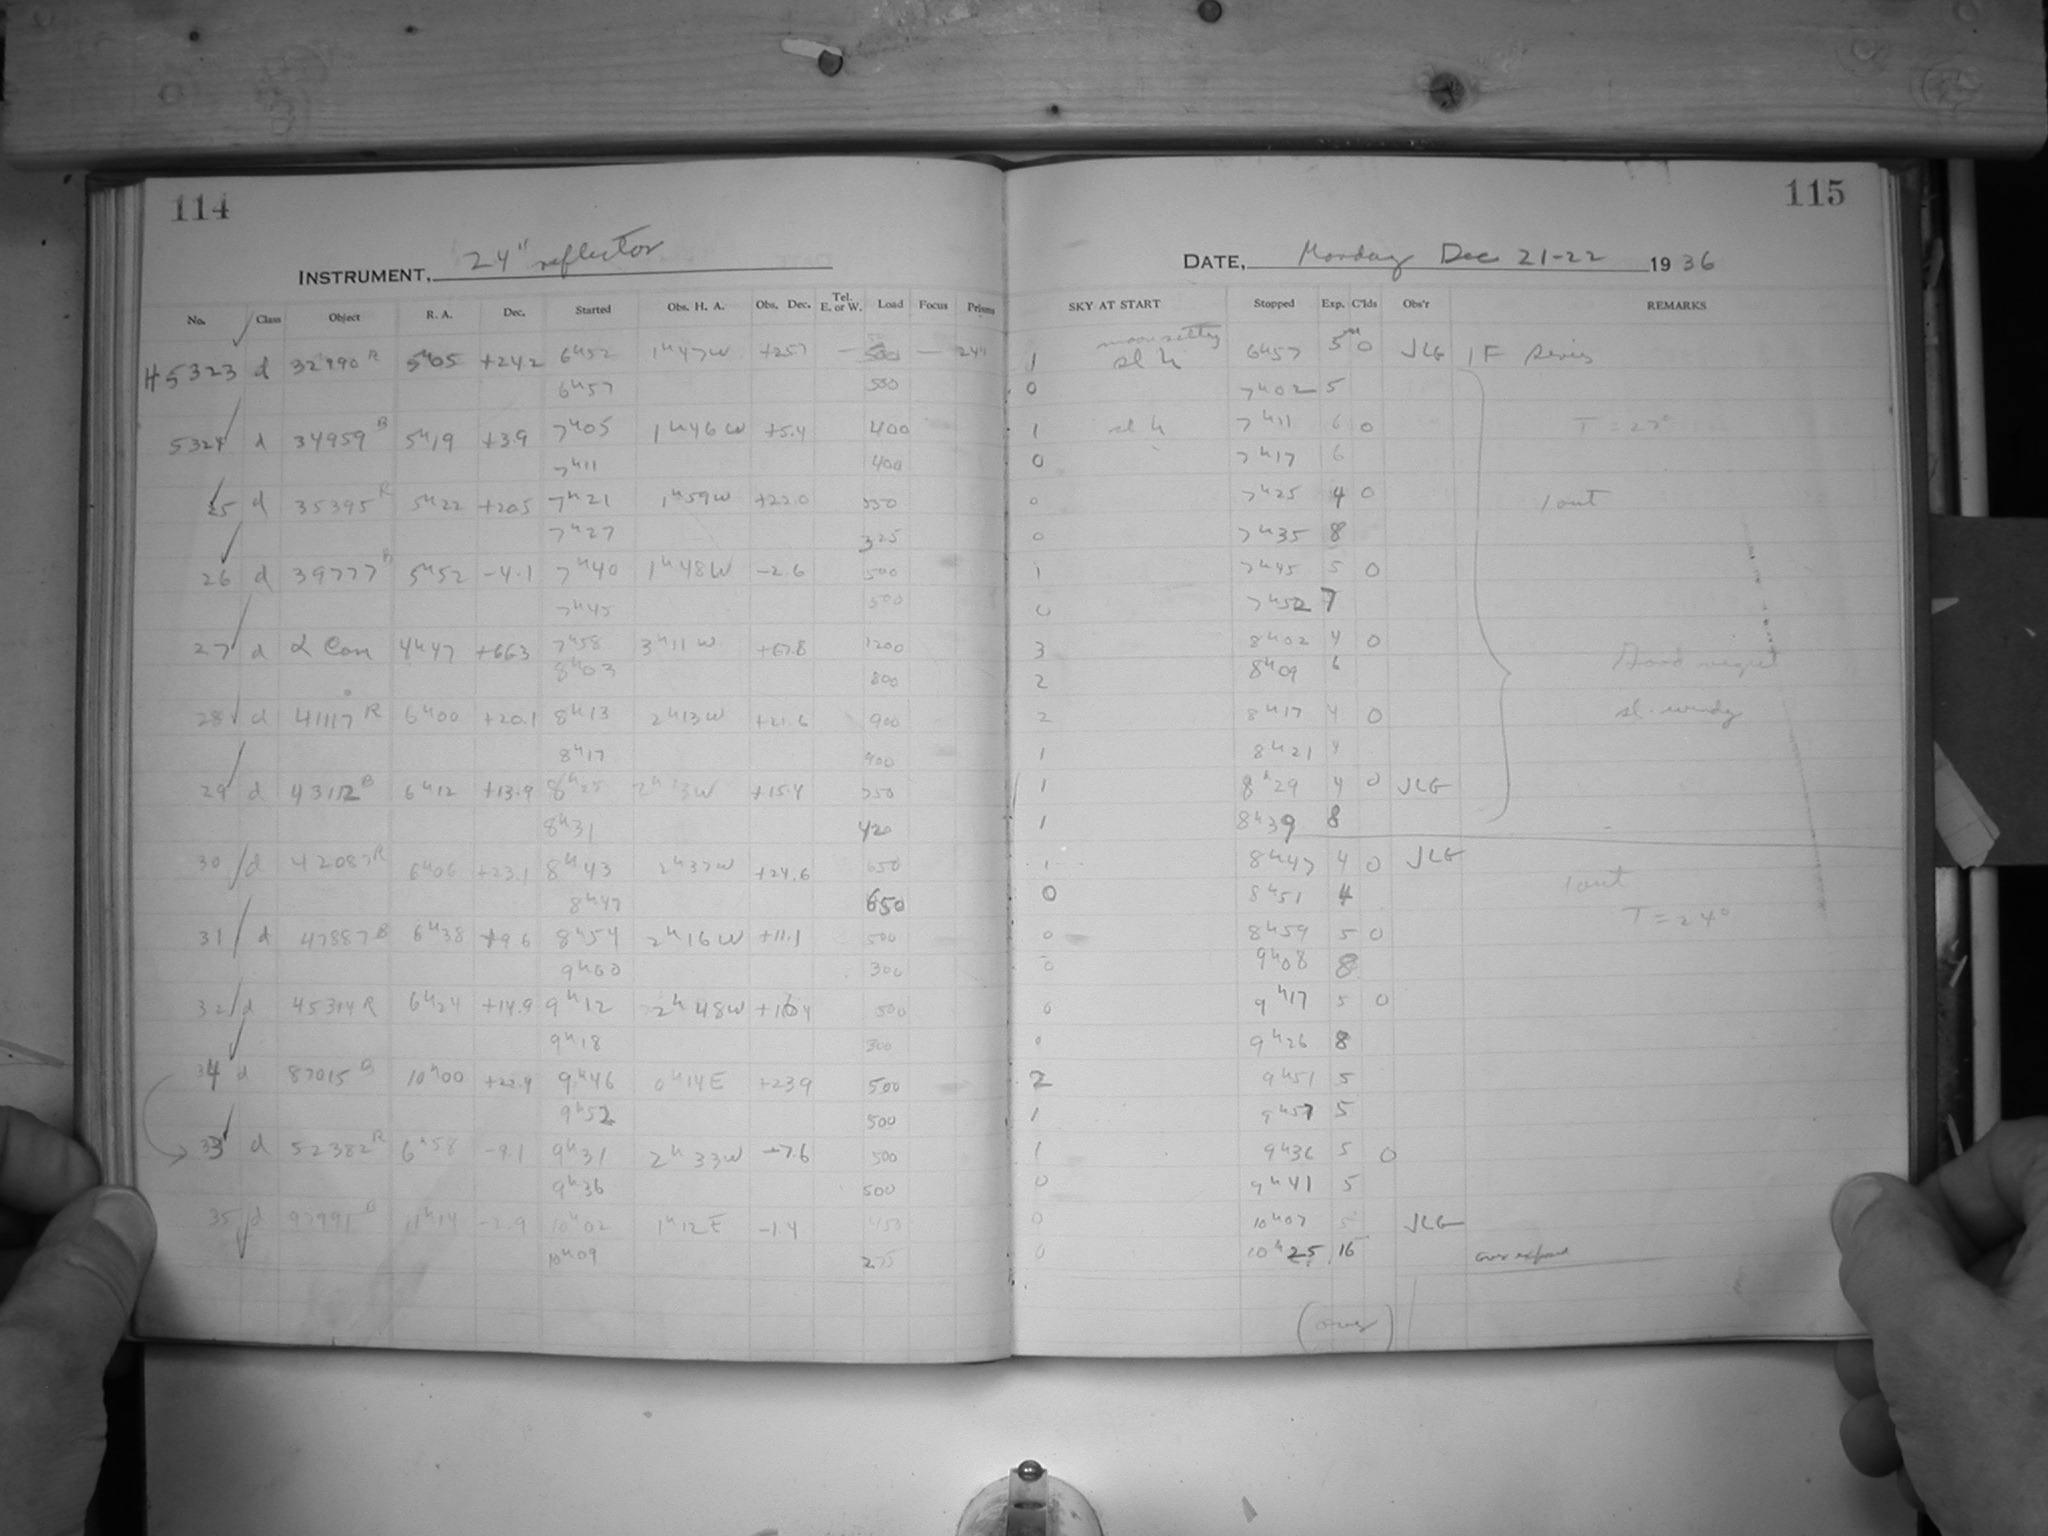 114
INSTRUMENT, 24" reflector
No. Class Object R. A. Dec. Started Obs. H. A. Obs. Dec. Tel. E. or W. Load Focus Prisms
H5323 d 32990 R 5h05 +24.2 6h52 1h47W +25.7 — 500 — 24"
6h57 500
5324 d 34959 B 5h19 +3.9 7h05 1h46W +5.4 400
7h11 400
25 d 35395 R 5h22 +20.5 7h21 1h59W +22.0 550
7h27 325
26 d 39777 B 5h52 -4.1 7h40 1h48W -2.6 500
7h45 500
27 d α Cam 4h47 +66.3 7h58 3h11W +67.8 1200
8h03 800
28 d 41117 R 6h00 +20.1 8h13 2h13W +21.6 900
8h17 900
29 d 43112 B 6h12 +13.9 8h25 2h13W +15.4 750
8h31 420
30 d 42087 R 6h06 +23.1 8h43 2h37W +24.6 650
8h47 650
31 d 47887 B 6h38 +9.6 8h54 2h16W +11.1 500
9h00 300
32 d 45314 R 6h24 +14.9 9h12 2h48W +16.4 500
9h18 300
34 d 87015 B 10h00 +22.4 9h46 0h14E +23.9 500
9h52 500
33 d 52382 R 6h58 -9.1 9h31 2h33W -7.6 500
9h36 500
35 d 97991 B 11h14 -2.9 10h02 1h12E -1.4 450
10h09 275
115
DATE, Monday Dec 21-22 1936
SKY AT START Stopped Exp. C'lds Obs'r REMARKS
moon setting
1 sl h 6h57 5m 0 JLG 1F Series
0 7h02 5
1 sl h 7h11 6 0 T = 27°
0 7h17 6
0 7h25 4 0 1 out
0 7h35 8
1 7h45 5 0
0 7h52 7
3 8h02 4 0
2 8h09 6
2 8h17 4 0 sl. windy
1 8h21 4
1 8h29 4 0 JLG
1 8h39 8
1 8h47 4 0 JLG 1 out
0 8h51 4 T = 24°
0 8h59 5 0
0 9h08 8
0 9h17 5 0
0 9h26 8
2 9h51 5
1 9h57 5
1 9h36 5 0
0 9h41 5
0 10h07 5 JLG
0 10h25 16 over exposed
(over)